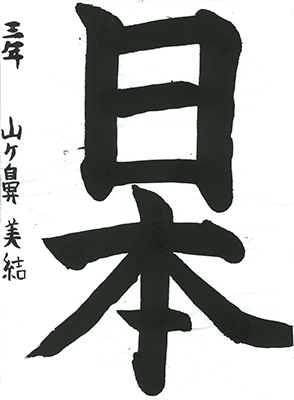 日本
三年 山ケ鼻美結